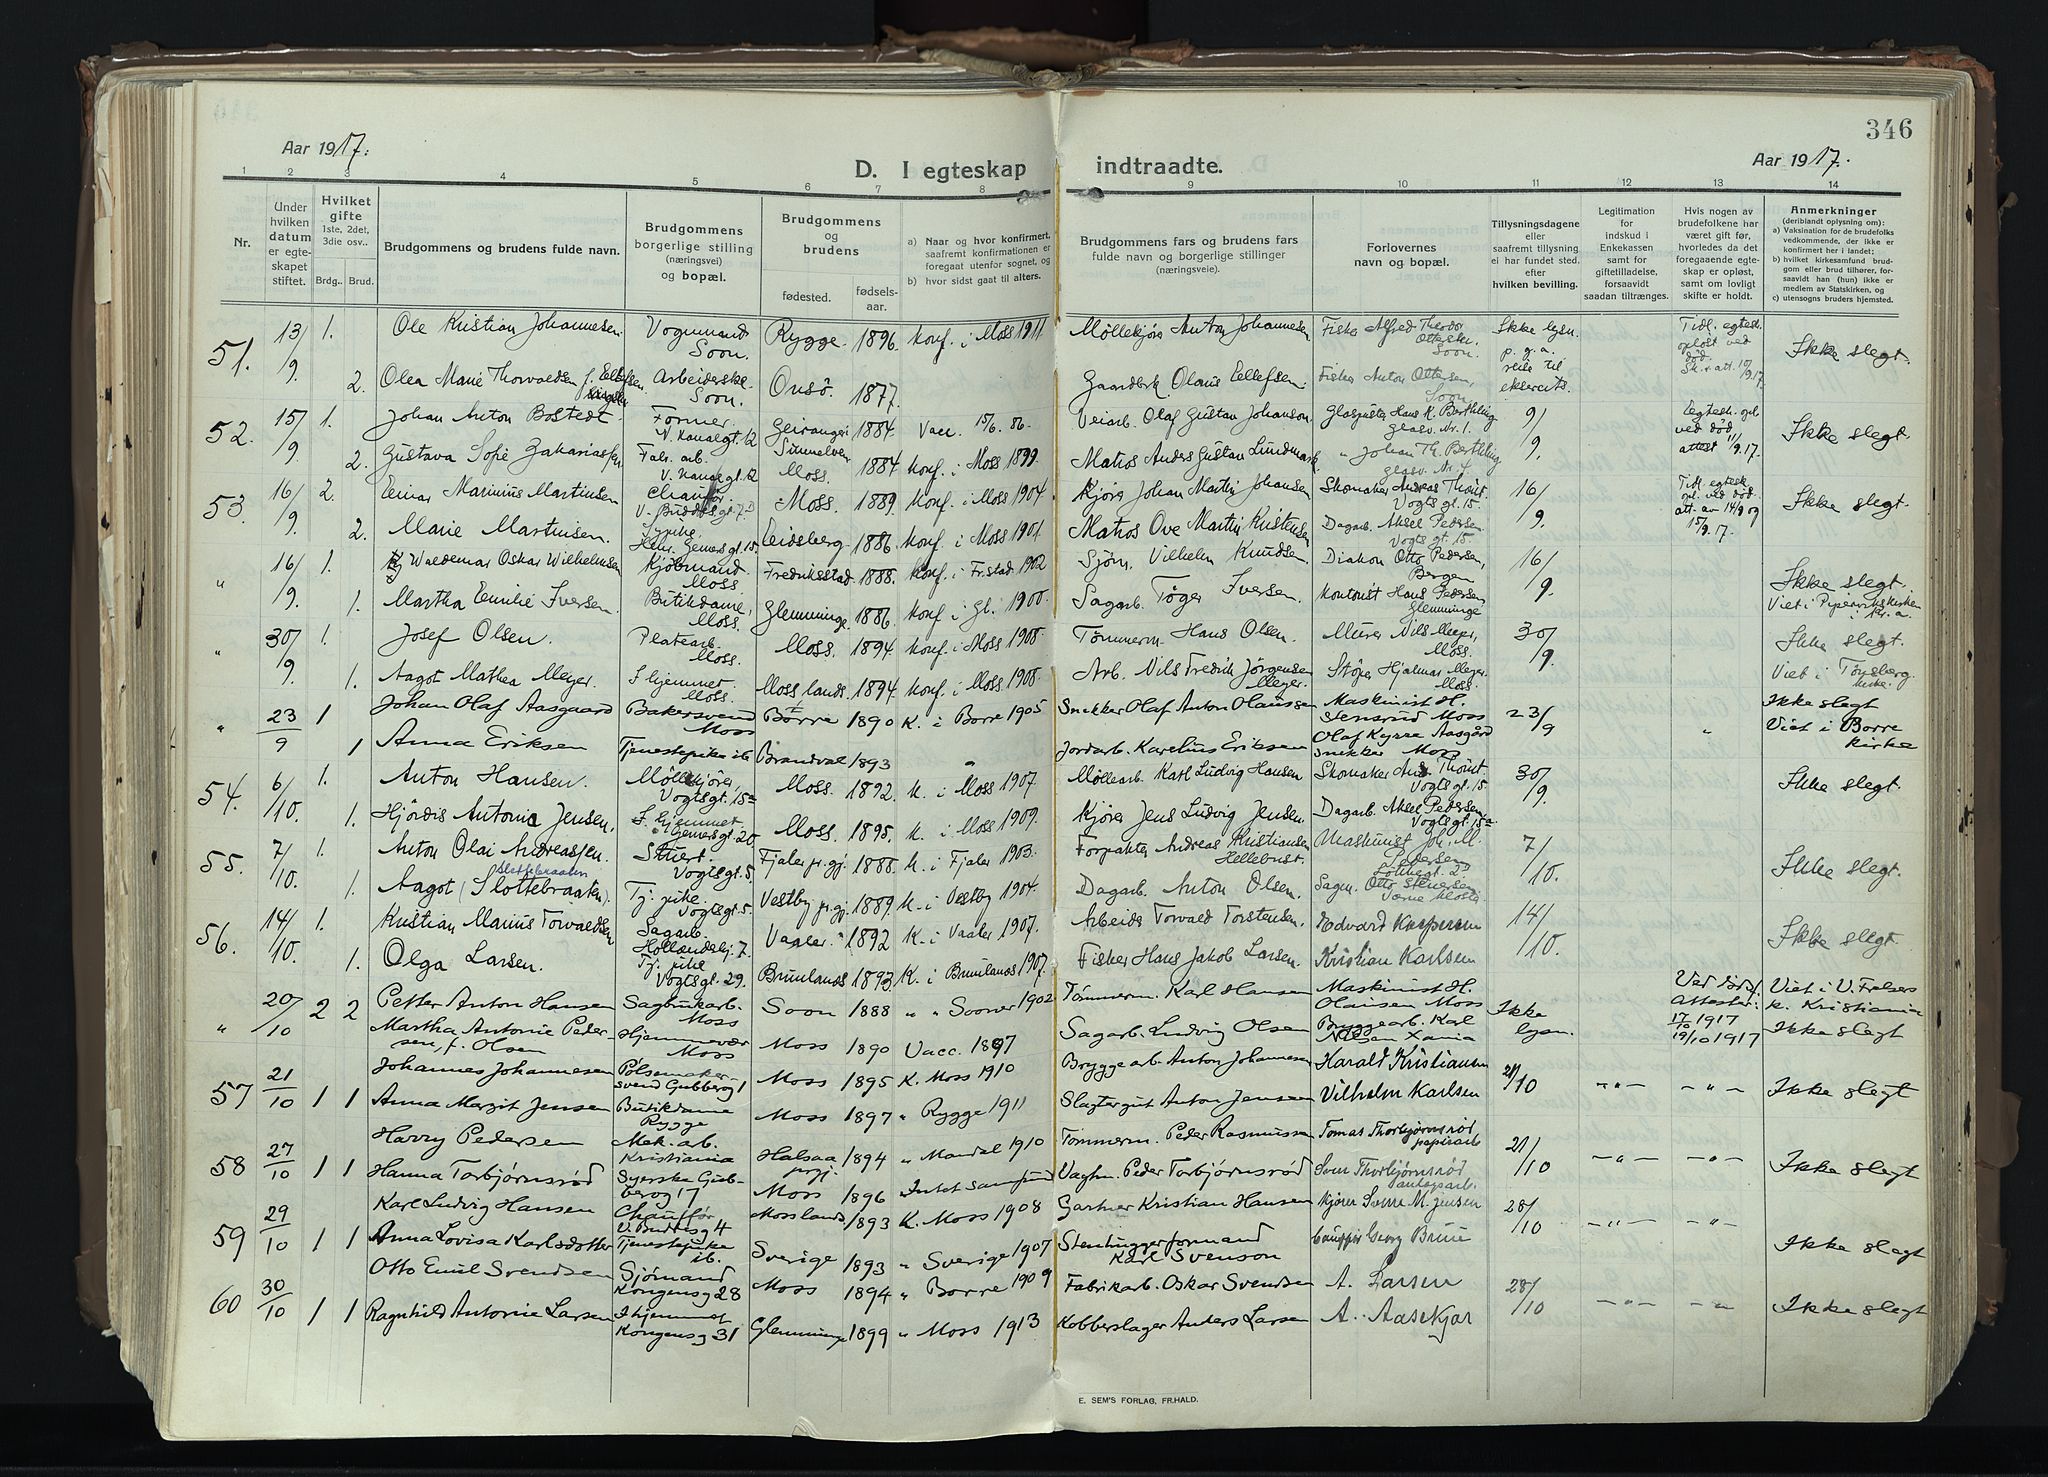 346
Aar 1917.
D. I egteskap indtraadte.
Aar 1917.
1 2 3 4 5 6 7 8 9 10 11 12 13 14
Nr.
Under hvilken datum er egteskapet stiftet.
Hvilket gifte 1ste, 2det, 3die osv..
Brdg.. Brud.
Brudgommens og brudens fulde navn.
Brudgommens borgerlige stilling (næringsvei) og bopæl.
Brudgommens og brudens
fødested. fødselsaar.
a) Naar og hvor konfirmert, saafremt konfirmationen er foregaat utenfor sognet, og
b) hvor sidst gaat til alters.
Brudgommens fars og brudens fars fulde navn og borgerlige stillinger (næringsveie).
Forlovernes navn og bopæl.
Tillysningsdagene eller saafremt tillysning ei har fundet sted, efter hvilken bevilling.
Legitimation for indskud i Enkekassen samt for giftetilladelse, forsaavidt saadan tiltrænges.
Hvis nogen av brudefolkene har været gift før, hvorledes da det foregaaende egteskap er opløst, samt om lovligt skifte er holdt.
Anmerkninger (deriblandt oplysning om):
a) Vaksination for de brudefolks vedkommende, der ikke er konfirmert her i landet;
b) hvilket kirkesamfund brudgom eller brud tilhører, forsaavidt han (hun) ikke er medlem av Statskirken, og
c) utensogns bruders hjemsted.
51. 13/9. 1. Ole Kristian Johannesen. Vognmand Soon. Rygge. 1896. Konf. i Moss 1911. Møllekjører Anton Johannesen Fisker Alfred Theodor Ottersen. Soon. Ikke lysn. p. g. a. reise til eksercits. Tidl. egtesk. opløst ved død. Ikke slegt.
2. Olea Marie Thorvaldsen f. Ellefsen. Arbeiderske. Soon. Onsö. 1877. Gaardbrk. Olaus Ellefsen. Fisker Anton Ottersen, Soon.
52. 15/9 1. Johan Anton Bostedt. Former V. Kanalgt. 12 1884. Vacc. 15/6. 86. Veiarb. Olaf Gustav Johanson. Glaspuster Hans K. Berthling glasv. Nr. 1. 9/9. Egtesk. opl. ved død. attest 11/9. 17. Ikke slegt.
2. Gustava Sofie Zakariassen Fabr. arb. V. Kanalgt. 12 Moss. 1884. Konf. i Moss 1899. Matros Anders Gustav Lundmark. " Johan Th. Berthling glasv. Nr. 4.
53. 16/9. 2. Einar Marinius Martinsen Chauffør. Moss. 1889. Konf. i Moss 1904. Kjører Johan Martin Johansen Skomaker Andreas Thorist. Vogts gt. 15. 16/9. Tidl. egtesk. opl. ved død. att. av 14/9 09 15/9. 17. Ikke slegt.
2. Marie Martinsen. Sypike, Henr. Gerners gt. 15. Eidsberg. 1886. Konf. i Moss 1901. Matros Ove Martin Kristensen Dagarb. Aksel Pedersen Vogts gt. 15.
" 16/9. 1. Waldemar Oskar Wilhelmsen Kjøbmand. Moss. Fredriksstad 1888. Konf. i Fr.stad 1902 Sjøm. Vilhelm Knudsen. Diakon Otto Pedersen, Bergen 16/9. Ikke slegt. Viet i Pipervikskirken i Kr.a.
1. Martha Emilie Iversen. Butikdame, Moss. Glemminge. 1886. Konf. i Gl. 1900. Sagarb. Tøger Iversen. Kontorist Hans Pedersen, Glemminge
" 30/9 1. Josef Olsen. Platearb. Moss. Moss. 1894. Konf. i Moss 1908. Tømmerm. Hans Olsen. Murer Nils Meyer, Moss. 30/9. Ikke slegt. Viet i Tönsberg kirke.
1. Aagot Mathea Meyer. I hjemmet Moss. Moss lands. 1894. Konf. i Moss. 1908. Arb. Nils Fredrik Jørgensen Meyer. Støper Hjalmar Meyer. Moss.
" 23/9 1 Johan Olaf Aasgaard Bakersvend Moss Borre 1890 K. i Borre 1905 Snekker Olaf Anton Olaussen Maskinist H. Jensrud Moss 23/9 " Ikke slegt Viet i Borre kirke
1 Anna Eriksen Tjenestepike ib Brandval 1893 " Jordarb. Karelius Eriksen Olaf Kyrre Aasgård snekker Moss
54. 6/10. 1. Anton Hansen. Møllekjører, Vogtsgt. 15a Moss. 1892. K. i Moss 1907. Møllearb. Karl Ludvig Hansen Skomaker And. Thorist. Vogtsgt. 15. 30/9. Ikke slegt.
1. Hjördis Antonie Jensen. I hjemmet Gernersgt. 20. Moss. 1895. K. i Moss 1909. Kjører Jens Ludvig Jensen Dagarb. Aksel Pedersen Vogtsgt. 15a
55. 7/10. 1. Anton Olai Andreassen. Stuert. Vogtsgt. 5. Fjaler pr.gj. 1888. K. i Fjaler 1903. Forpakter Andreas Kristiansen Hellebust. Maskinist Joh. M. Pedersen 7/10. Ikke slegt.
1. Aagot (Slottebraaten). Slettebraaten Tj. pike Vogtsgt. 5. Vestby pr.gj. 1889. K. i Vestby 1904. Dagarb. Anton Olsen. Sagm. Otto Stenersen Værne Kloster
56. 14/10. 1. Kristian Marius Torvaldsen Sagarb. Vaaler. 1892 K. i Vaaler 1907. Arbeider Torvald Torstensen. Edvard Kaspersen 14/10. Ikke slegt.
1. Olga Larsen. Tj. pike Vogtsgt. 29. Brunlanæs 1893 K. i Brunlanæs 1907. Fisker Hans Jakob Larsen. Kristian Karlsen
" 20/10 2 2 Petter Anton Hansen Sagbrukarb. Moss Soon 1888 " " Sooner 1902 Tømmerm. Karl Hansen Maskinist H. Hansen Moss Ikke lysn. Ved død. Attester: 17/10 1917 19/10 1917 Viet i V. Frelsers k. Kristiania Ikke slegt
Martha Antonie Pedersen, f. Olsen Hjemmevær Moss Moss 1890 Vacc. 1897 Sagarb. Ludvig Olsen Bryggearb. Karl Nilsen Xania
57 21/10 1 1 Johannes Johannesen Pølsemakersvend Gubberog 1 Moss 1895 K. Moss 1910 Bryggearb. Anton Johannesen Harald Kristiansen 21/10 -"- -"- Ikke slegt
Anna Margit Jensen Butikdame Rygge Moss 1897 " Rygge 1911 Slagtergut Anton Jensen Vilhelm Karlsen
58 27/10 1 1 Harry Pedersen Mek. arb. Kristiania Halsaa prgj. 1894 " Mandal 1910 Tømmerm. Peder Rasmussen Tomas Thorbjørnsrød papirarb 21/10 -"- -"- Ikke slegt
Hanna Torbjørnsrød Syerske Gubberog 17 Moss 1896 " Intet samfund Vagtm. Peder Torbjørnsrød Sven Thorbjørnsrød
59 29/10 1 1 Karl Ludvig Hansen Chauffør Mosslands. 1893 K. Moss 1908 Gartner Kristian Hansen Kjører Sverre M. Jensen 28/10 -"- -"- Ikke slegt
Anna Lovisa Karlsdotter Tjenestepike ib. Sverige 1893 " Sverige 1907 Stenhuggerformand Karl Svenson Chauffør Georg Bruue
60 30/10 1 1 Otto Emil Svendsen Sjømand Kongensg 28 Moss 1894 " Borre 1909 Fabrikarb. Oskar Svendsen A. Larsen 28/10 -"- -"- Ikke slegt
Ragnhild Antonie Larsen I hjemmet Kongensg 31 Glemminge 1899 " Moss 1913 Kobberslager Anders Larsen A. Aasekjær
E. SEM'S FORLAG, FR.HALD.